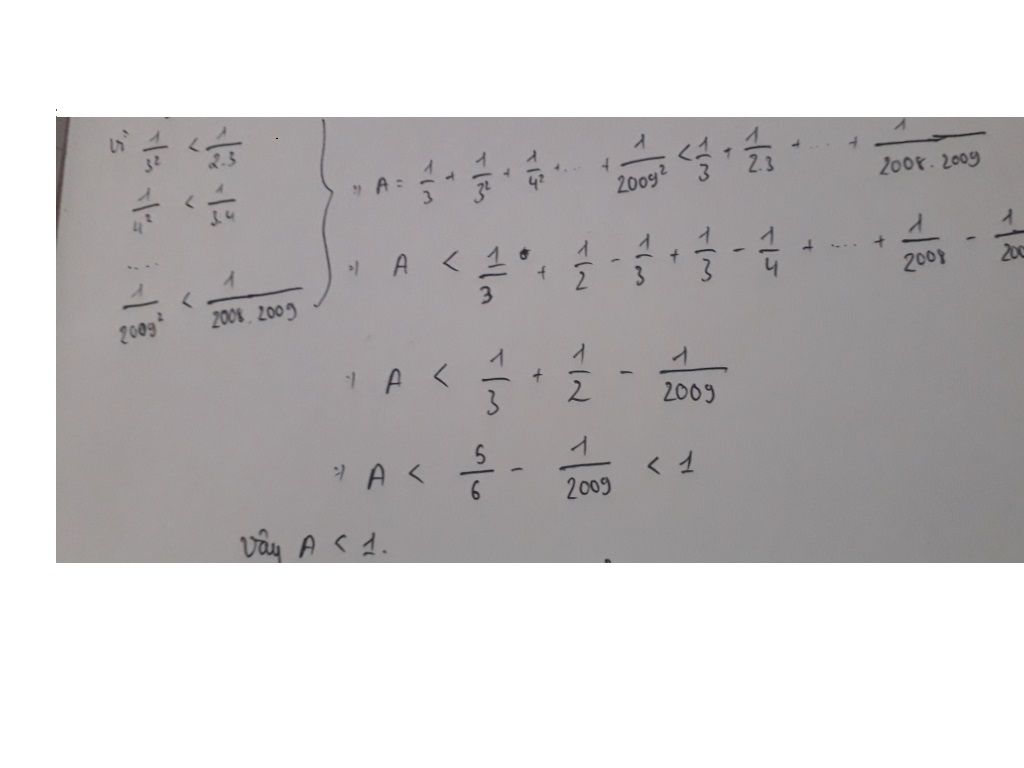 Vì 1/3² < 1/2.3
1/4² < 1/3.4
....
1/2009² < 1/2008.2009
=> A = 1/3 + 1/3² + 1/4² + ... + 1/2009² < 1/3 + 1/2.3 + ... + 1/2008.2009
=> A < 1/3 + 1/2 - 1/3 + 1/3 - 1/4 + .... + 1/2008 - 1/200
=> A < 1/3 + 1/2 - 1/2009
=> A < 5/6 - 1/2009 < 1
Vậy A < 1.